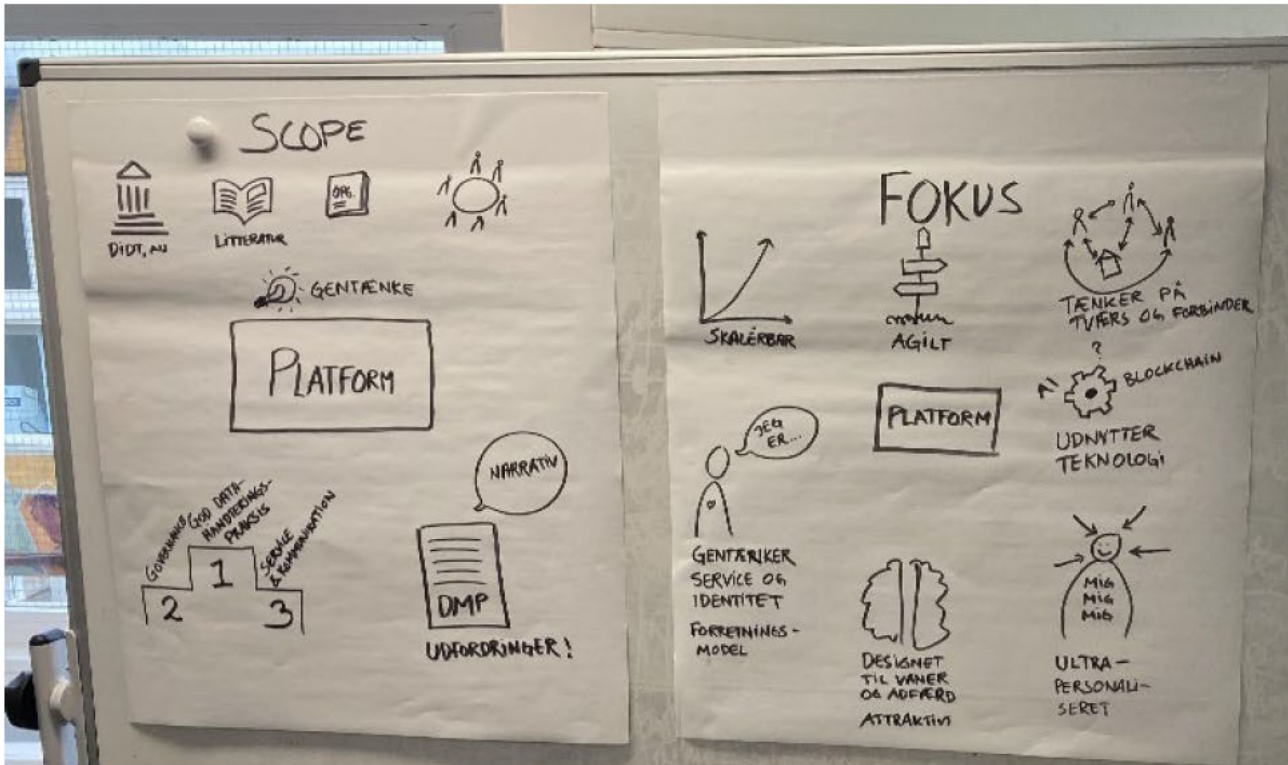 SCOPE
DIDT, AU
LITTERATUR
OPG.
GENTÆNKE
PLATFORM
GOVERNANCE
GOD DATA-
HANDTERINGS-
PRAKSIS
SERVICE
& KOMMUNIKATION
2
1
3
NARRATIV
DMP
UDFORDRINGER!
FOKUS
SKALÉRBAR
AGILT
TÆNKER PÅ
TVÆRS OG FORBINDER
JEG
ER...
PLATFORM
?
BLOCKCHAIN
UDNYTTER
TEKNOLOGI
GENTÆNKER
SERVICE OG
IDENTITET
FORRETNINGS-
MODEL
DESIGNET
TIL VANER
OG ADFÆRD
ATTRAKTIVT
MIG
MIG
MIG
ULTRA-
PERSONALI-
SERET